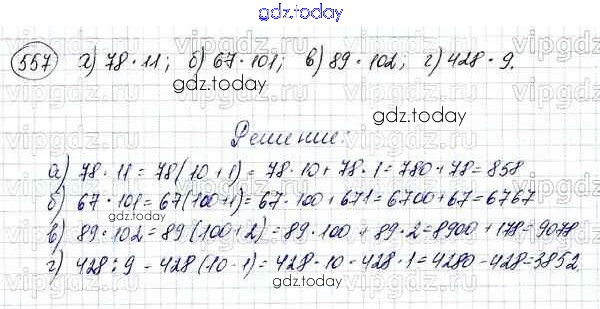 gdz.today
557 а) 78 · 11; б) 67 · 101; в) 89 · 102; г) 428 · 9.
gdz.today
gdz.today
Решение:
а) 78 · 11 = 78(10 + 1) = 78 · 10 + 78 · 1 = 780 + 78 = 858
б) 67 · 101 = 67(100+1) = 67 · 100 + 67·1 = 6700 + 67 = 6767
gdz.today
в) 89 · 102 = 89(100 + 2) = 89 · 100 + 89 · 2 = 8900 + 178 = 9078
г) 428 : 9 - 428(10 - 1) = 428 · 10 - 428 · 1 = 4280 - 428 = 3852.
gdz.today